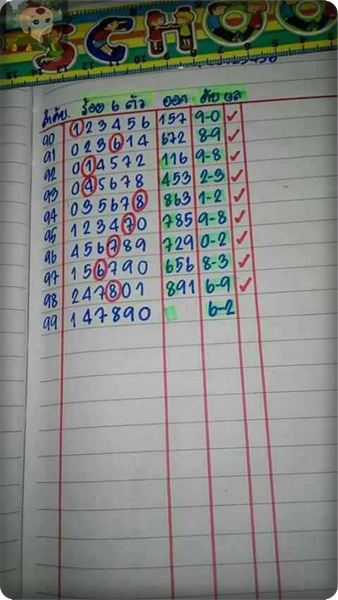 SCHOO
ลำดับ. ร้อย 6 ตัว ออก ดับ ผล
90 123456 157 9-0 ✓
91 023614 672 8-9 ✓
92 014572 116 9-8 ✓
93 045678 453 2-3 ✓
94 035678 863 1-2 ✓
95 123470 785 9-8 ✓
96 456789 729 0-2 ✓
97 156790 656 8-3 ✓
98 247801 891 6-9 ✓
99 147890 6-2